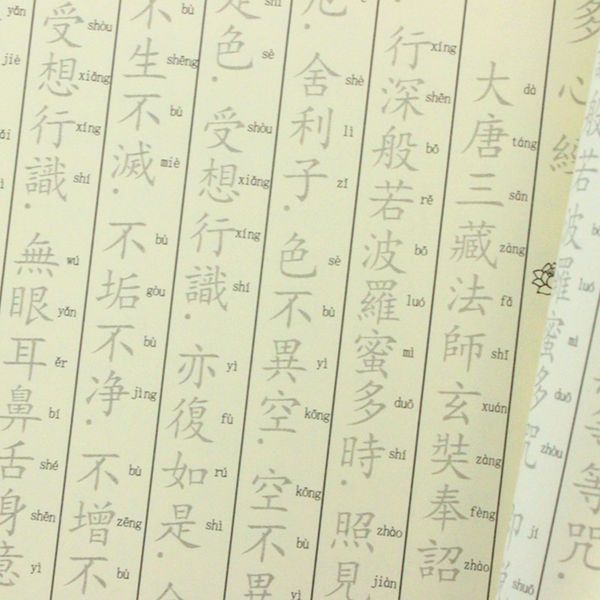 等咒.
若 波 羅 luó 蜜 mì 多 duō 咒 zhòu
多心經
大 dà 唐 táng 三 sān 藏 zàng 法 fǎ 師 shī 玄 xuán 奘 zàng 奉 fèng 詔 zhào
行 xíng 深 shēn 般 bō 若 rě 波 bō 羅 luó 蜜 mì 多 duō 時 shí . 照 zhào 見 jiàn
舍 shè 利 lì 子 zǐ . 色 sè 不 bù 異 yì 空 kōng . 空 kōng 不 bù 異 yì
是 shì 色 sè . 受 shòu 想 xiǎng 行 xíng 識 shí . 亦 yì 復 fù 如 rú 是 shì .
不 bù 生 shēng 不 bù 滅 miè . 不 bù 垢 gòu 不 bù 净 jìng . 不 bù 增 zēng 不 bù
受 shòu 想 xiǎng 行 xíng 識 shí . 無 wú 眼 yǎn 耳 ěr 鼻 bí 舌 shé 身 shēn 意 yì
yǎn jiè